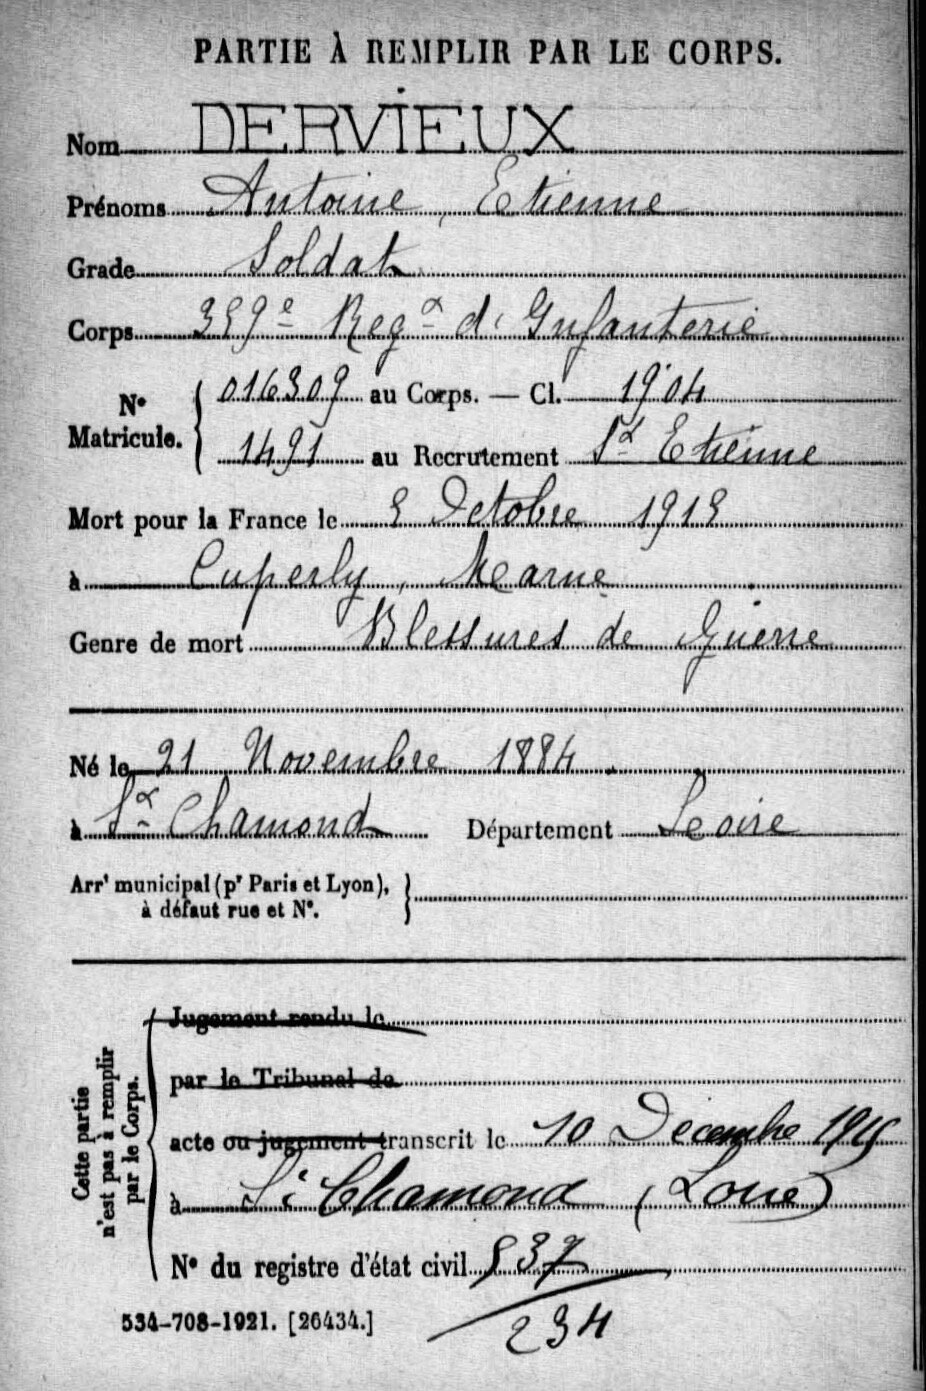 PARTIE À REMPLIR PAR LE CORPS.
Nom DERVIEUX
Prénoms Antoine, Etienne
Grade Soldat
Corps 359e Regt d'Infanterie
No Matricule. { 016309 au Corps. — Cl. 1904
1491 au Recrutement St Etienne
Mort pour la France le 5 Octobre 1915
à Cuperly, Marne
Genre de mort Blessures de Guerre
Né le 21 Novembre 1884
à St Chamond Département Loire
Arrt municipal (pr Paris et Lyon), }
à défaut rue et No.
Cette partie
n'est pas à remplir
par le Corps.
Jugement rendu le
par le Tribunal de
acte ou jugement transcrit le 10 Décembre 1915
à St Chamond (Loire)
No du registre d'état civil 537
534-708-1921. [26434.] 234